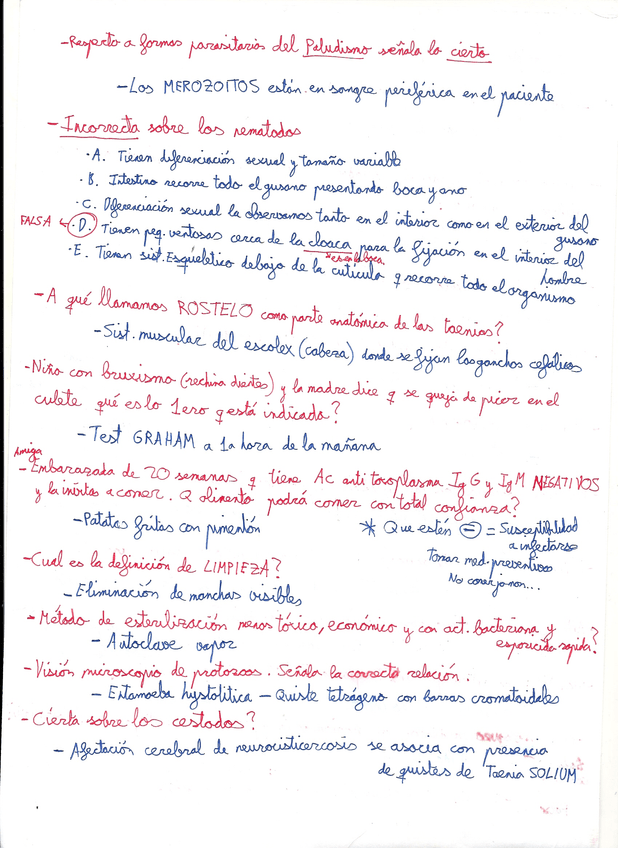 -Respecto a formas parasitarias del Paludismo señala la cierta
-Los MEROZOITOS están en sangre periférica en el paciente
-Incorrecta sobre los nematodos
·A. Tienen diferenciación sexual y tamaño variable
·B. Intestino recorre todo el gusano presentando boca y ano
·C. Diferenciación sexual la observamos tanto en el interior como en el exterior del gusano
FALSA ← ·D. Tienen peq. ventosas cerca de la cloaca para la fijación en el interior del hombre
*es en la boca
·E. Tienen sist. Esquelético debajo de la cutícula q recorre todo el organismo
-A qué llamamos ROSTELO como parte anatómica de las taenias?
-Sist. muscular del escolex (cabeza) donde se fijan los ganchos cefálicos
-Niño con bruxismo (rechina dientes) y la madre dice q se queja de picor en el
culete qué es lo 1ero q está indicado?
-Test GRAHAM a 1a hora de la mañana
Amiga
-Embarazada de 20 semanas q tiene Ac anti toxoplasma IgG y IgM NEGATIVOS
y la invitas a comer. Q alimento podrá comer con total confianza?
-Patatas fritas con pimentón
* Que estén ⊖ = Susceptibilidad
a infectarse
Tomar med. preventivas
No comer jamon...
-Cual es la definición de LIMPIEZA?
-Eliminación de manchas visibles
-Método de esterilización menos tóxico, económico y con act. bacteriana y
esporicida rapida?
-Autoclave vapor
-Visión microscopio de protozoos. Señala la correcta relación.
-Entamoeba hystolitica - Quiste tetrágeno con barras cromatoidales
-Cierta sobre los cestodos?
-Afectación cerebral de neurocisticercosis se asocia con presencia
de quistes de Taenia SOLIUM